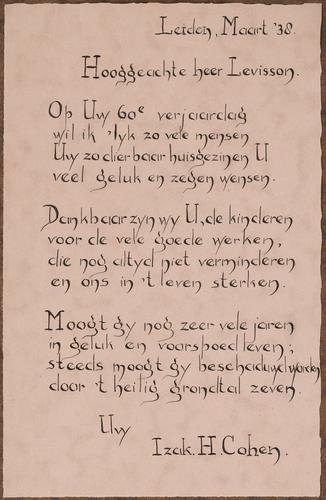 Leiden, Maart '38.
Hooggeachte heer Levisson.
Op Uw 60e verjaardag
wil ik 'lyk zo vele mensen
Uw zo dierbaar huisgezin en U
veel geluk en zegen wensen.
Dankbaar zyn wy U, de kinderen
voor de vele goede werken,
die nog altyd niet verminderen
en ons in 't leven sterken.
Moogt gy nog zeer vele jaren
in geluk en voorspoed leven;
steeds moogt gy beschaduwd worden
door 't heilig grondtal zeven.
Uw
Izak. H. Cohen.